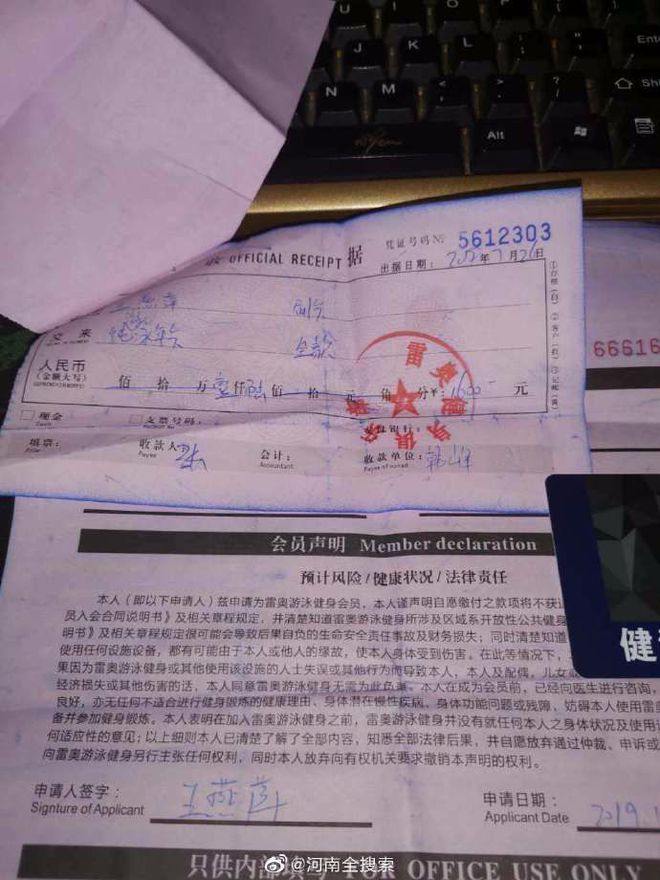 J K L
Ente
N M
Alt
OFFICIAL RECEIPT 据
凭证号码№ 5612303
出据日期： 年 7月 26日
交来
全款
66616
人民币
(金额大写)
佰 拾 万 壹仟 陆佰 拾 元 角 分¥：1600 元
雷奥
现金
支票号码：
填票：
收款人
Payee
会计：
Accountant
收款单位：
会员声明 Member declaration
预计风险/健康状况/法律责任
本人（即以下申请人）兹申请为雷奥游泳健身会员，本人谨声明自愿缴付之款项将不获
员入会合同说明书》及相关章程规定，并清楚知道雷奥游泳健身所涉及区域系开放性公共健身
明书》及相关章程规定很可能会导致后果自负的生命安全责任事故及财务损失；同时清楚知道
使用任何设施设备，都有可能由于本人或他人的缘故，使本人身体受到伤害。在此等情况下，
果因为雷奥游泳健身或其他使用该设施的人士失误或其他行为而导致本人，本人及配偶，儿女或
经济损失或其他伤害的话，本人同意雷奥游泳健身无需为此负责。本人在成为会员前，已经向医生进行咨询，
良好，亦无任何不适合进行健身锻炼的健康理由、身体潜在慢性疾病、身体功能问题或残障，妨碍本人使用雷奥
备并参加健身锻炼。本人表明在加入雷奥游泳健身之前，雷奥游泳健身并没有就任何本人之身体状况及使用
何适应性的意见；以上细则本人已清楚了解了全部内容，知悉全部法律后果，并自愿放弃通过仲裁、申诉或
向雷奥游泳健身另行主张任何权利，同时本人放弃向有权机关要求撤销本声明的权利。
健
申请人签字：
Signture of Applicant
王燕萍
申请日期：
Applicant Date
2019.
只供内部填写 FOR OFFICE USE ONLY
@河南全搜索